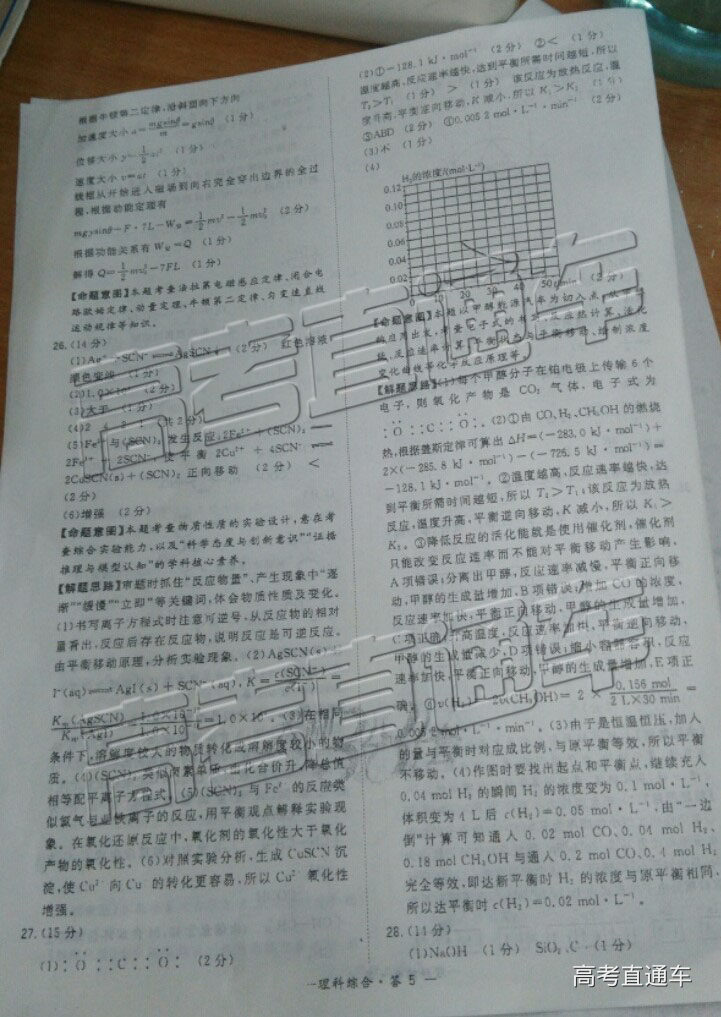 根据牛顿第二定律,沿斜面向下方向
加速度大小a=mgsinθ/m=gsinθ (1分)
位移大小y=1/2at² (1分)
速度大小v=at (1分)
线框从开始进入磁场到向右完全穿出边界的全过
程,根据动能定理有
mgysinθ-F·7L-W安=1/2mv²-1/2mv₀² (2分)
根据功能关系有W安=Q (1分)
解得Q=1/2mv₀²-7FL (1分)
【命题意图】本题考查法拉第电磁感应定律、闭合电
路欧姆定律、动量定理、牛顿第二定律、匀变速直线
运动规律等知识。
26.(14分)
(1) (2分) 红色溶液
(1分)
(2)1.0× (2分)
(3)大于 (1分)
(4)2 4 2 1 (共2分)
(5) 与(SCN)₂发生反应:2Fe²⁺+(SCN)₂
2Fe³⁺ 2SCN⁻,使平衡2Cu²⁺+4SCN⁻
2CuSCN(s)+(SCN)₂正向移动 (2分) <
(2分)
(6)增强 (2分)
【命题意图】本题考查物质性质的实验设计,意在考
查综合实验能力,以及“科学态度与创新意识”“证据
推理与模型认知”的学科核心素养。
【解题思路】审题时抓住“反应物量”、产生现象中“逐
渐”“缓慢”“立即”等关键词,体会物质性质及变化。
(1)书写离子方程式时注意可逆号,从反应物的相对
量看出,反应后存在反应物,说明反应是可逆反应。
由平衡移动原理,分析实验现象。(2)AgSCN(s)+
I⁻(aq)⇌AgI(s)+SCN⁻(aq),K=c(SCN⁻)/c(I⁻)=
Ksp(AgSCN)/Ksp(AgI) =1.0×10 。(3)在相同
条件下,溶解度较大的物质转化成溶解度较小的物
质。(4)(SCN)₂类似卤素单质,
相等配平离子方程式。(5)(SCN)₂与Fe²⁺的反应类
似氯气与亚铁离子的反应,用平衡观点解释实验现
象。在氧化还原反应中,氧化剂的氧化性大于氧化
产物的氧化性。(6)对照实验分析,生成CuSCN沉
淀,使Cu²⁺向Cu⁺的转化更容易,所以Cu²⁺氧化性
增强。
27.(15分)
(1):Ö::C::Ö: (2分)
(2)①-128.1 kJ·mol⁻¹ (2分) ②< (1分)
温度越高,反应速率越快,达到平衡所需时间越短,所以
T₂>T₁ (1分) > (1分) 该反应为放热反应,温
度升高,平衡逆向移动,K减小,所以K₁>K₂ (1分)
③ABD (2分) ④0.005 2 mol·L⁻¹·min⁻¹ (2分)
(3)不 (1分)
(4)
H₂的浓度/(mol·L⁻¹)
0.12
0.10
0.08
0.06
0.04
0.02
0 10 20 30 40 50 t/min (2分)
【命题意图】本题以甲醇能源汽车为切入点,
考查电子式的书写、反应热计算、活化
能、反应速率计算、平衡状态与平衡移动、绘制浓度
变化曲线等化学反应原理等。
【解题思路】(1)每个甲醇分子在铂电极上传输6个
电子,则氧化产物是CO₂气体,电子式为
:Ö::C::Ö:。(2)①由CO、H₂、CH₃OH的燃烧
热,根据盖斯定律可算出ΔH=(-283.0 kJ·mol⁻¹)+
2×(-285.8 kJ·mol⁻¹)-(-726.5 kJ·mol⁻¹)=
-128.1 kJ·mol⁻¹。②温度越高,反应速率越快,达
到平衡所需时间越短,所以T₂>T₁;该反应为放热
反应,温度升高,平衡逆向移动,K减小,所以K₁>
K₂。③降低反应的活化能就是使用催化剂,催化剂
只能改变反应速率而不能对平衡移动产生影响,
A项错误;分离出甲醇,反应速率减慢,平衡正向移
动,甲醇的生成量增加,B项错误;增加CO的浓度,
反应速率加快,平衡正向移动,甲醇的生成量增加,
C项正确;升高温度,反应速率加快,平衡逆向移动,
甲醇的生成量减少,D项错误;缩小容器容积,反应
速率加快,平衡正向移动,甲醇的生成量增加,E项正
确。④v(H₂)=2v(CH₃OH)=2×0.156 mol/(2 L×30 min)=
0.005 2 mol·L⁻¹·min⁻¹。(3)由于是恒温恒压,加入
的量与平衡时对应成比例,与原平衡等效,所以平衡
不移动。(4)作图时要找出起点和平衡点,继续充入
0.04 mol H₂的瞬间H₂的浓度变为0.1 mol·L⁻¹,
体积变为4 L后c(H₂)=0.05 mol·L⁻¹,由“一边
倒”计算可知通入0.02 mol CO、0.04 mol H₂、
0.18 mol CH₃OH与通入0.2 mol CO、0.4 mol H₂
完全等效,即达新平衡时H₂的浓度与原平衡相同,
所以达平衡时c(H₂)=0.02 mol·L⁻¹。
28.(14分)
(1)NaOH (1分) SiO₂、C (1分)
—理科综合·答 5 —
高考直通车
高考直通车
高考直通车